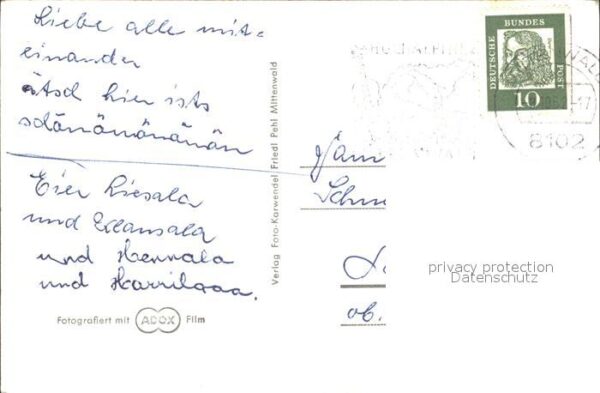 Liebe alle mit=
einander
ätsch hier ists
schänänänänän
Eier Liesala
und Klausala
und Hennala
und Harrilaaa.
Fotografiert mit ADOX Film
Verlag Foto-Karwendel Friedl Pehl Mittenwald
DEUTSCHE BUNDES POST
10
8102
Fam
Schm
ob.
privacy protection
Datenschutz